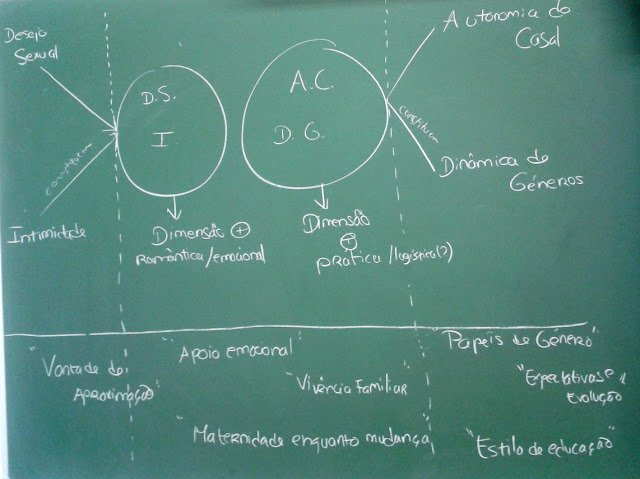 Desejo
Sexual
constituem
Intimidade
D.S.
I
Dimensão ⊕
romântica/emocional
A.C.
D.G.
Dimensão
⊕
prática/logística(?)
Autonomia do
Casal
constituem
Dinâmica de
Géneros
"Vontade de
Aproximação"
"Apoio emocional"
"Vivência Familiar"
"Maternidade enquanto mudança"
"Papéis de Género"
"Expectativas e
Evolução"
"Estilo de educação"